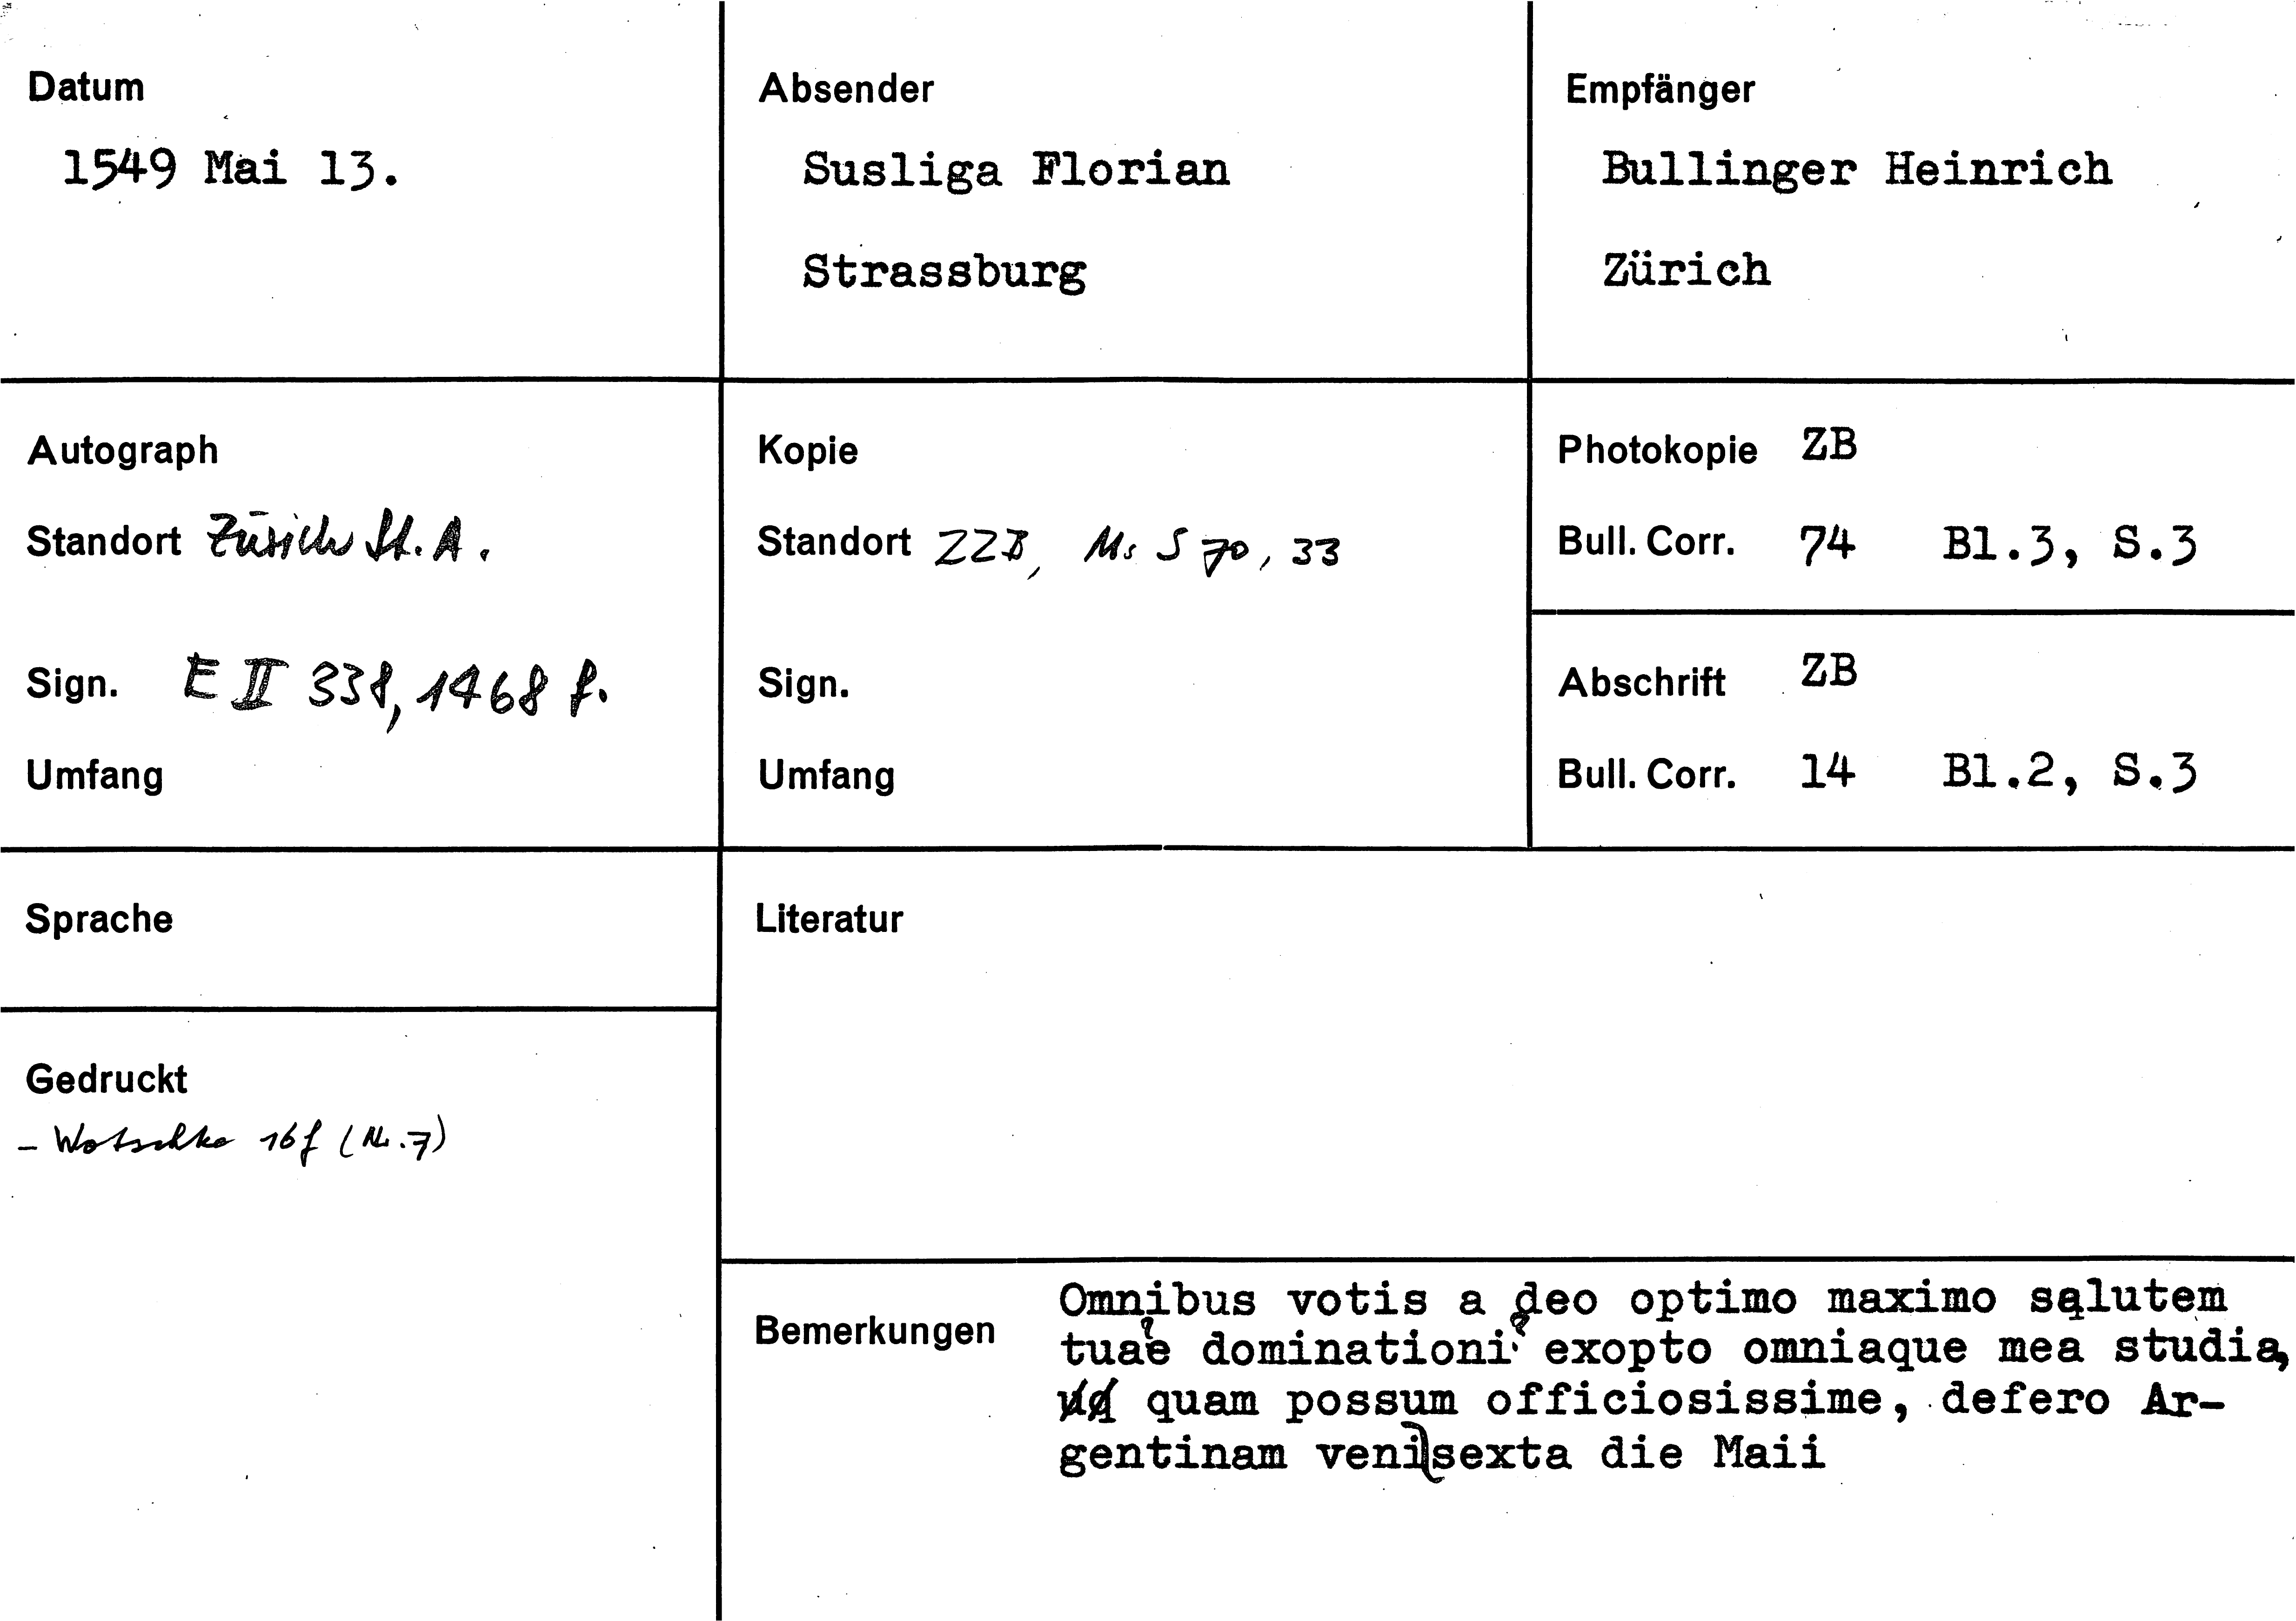 Datum
1549 Mai 13.
Absender
Susliga Florian
Strassburg
Empfänger
Bullinger Heinrich
Zürich
Autograph
Standort Zürich St. A.
Sign. E II 338, 1468 f.
Umfang
Kopie
Standort ZZB, Ms S 70, 33
Sign.
Umfang
Photokopie ZB
Bull. Corr. 74 Bl.3, S.3
Abschrift ZB
Bull. Corr. 14 Bl.2, S.3
Sprache
Gedruckt
- Wotschke 16 f (Nr. 7)
Literatur
Bemerkungen
Omnibus votis a deo optimo maximo salutem
tuae dominationi exopto omniaque mea studia,
quam possum officiosissime, defero Ar-
gentinam veni sexta die Maii